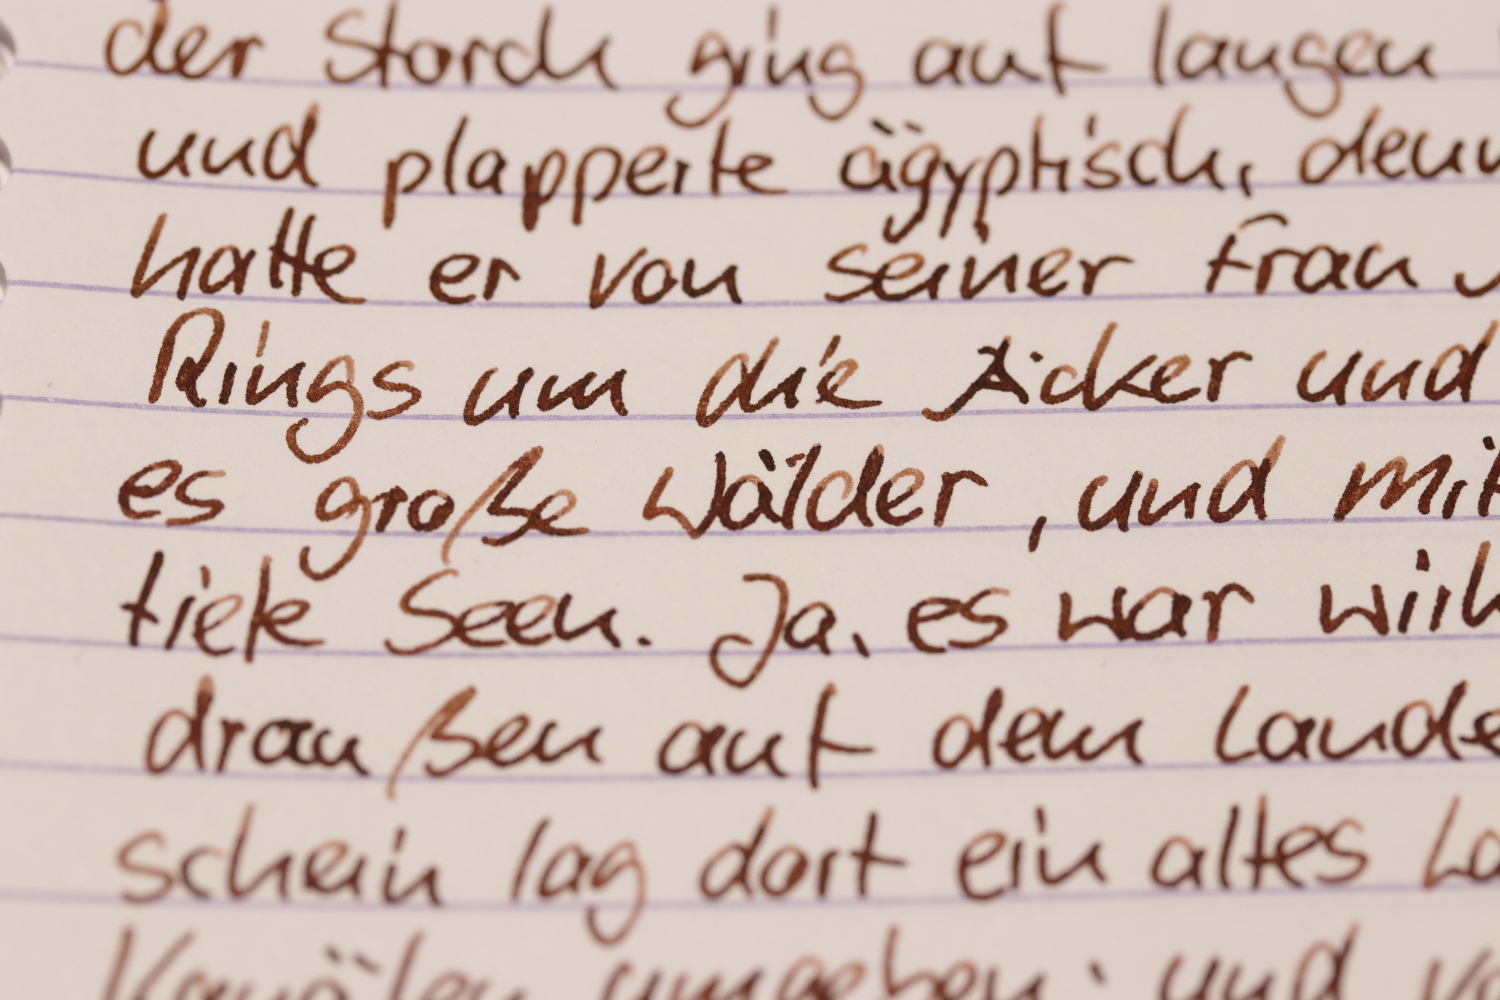 der Storch ging auf langen
und plapperte ägyptisch, denn
hatte er von seiner Frau
Rings um die Äcker und
es große Wälder, und mit
tiefe Seen. Ja, es war wirk
draußen auf dem Lande
schein lag dort ein altes La
Kanälen umgeben; und vo